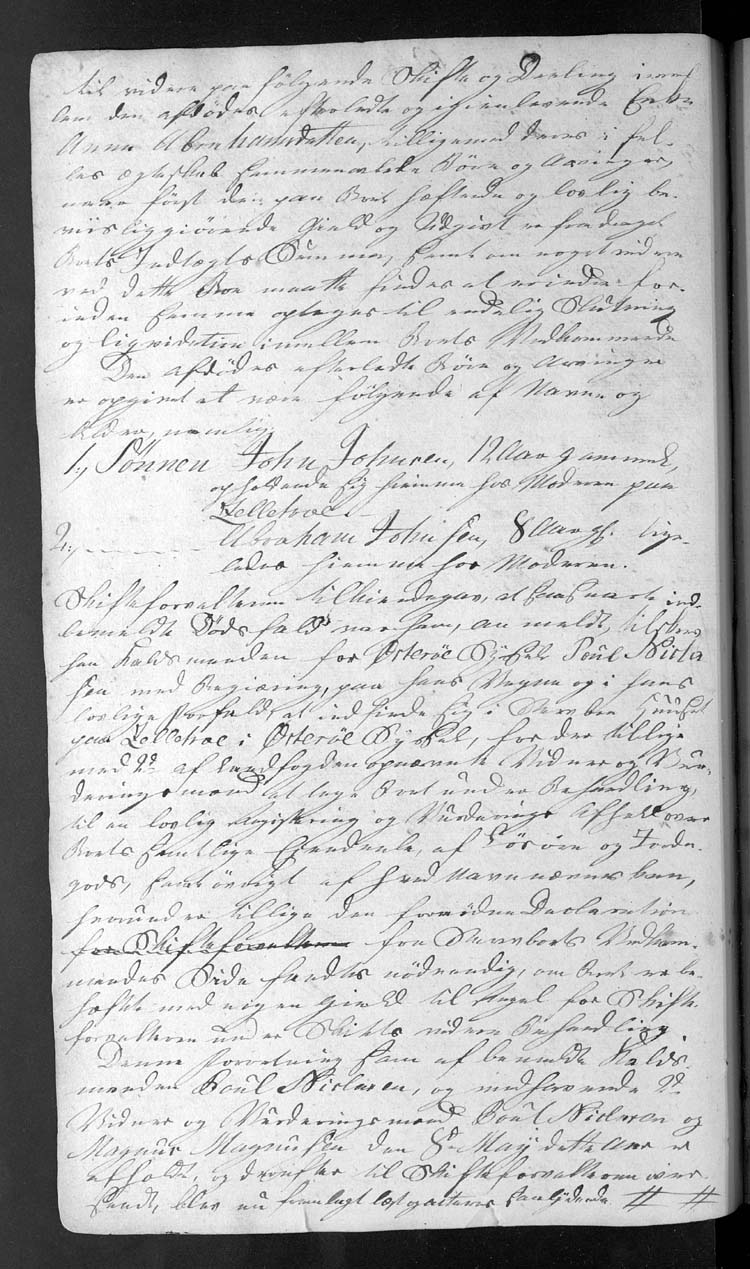 til videre paafølgende Skifte og Deeling imel-
lem den afdødes efterladte og igienlevende Enke
Anna Abrahamsdatter, tilligemed deres i fel-
les ægteskab sammenavlede Børn og Arvinger,
naar først den paa Boet hæftende og lovlig be-
viisliggiörende Gield og Udgivt er fradraget
Boets Indtægts Summa, samt om noget videre
ved dette Boe maatte findes at erindre for-
inden samme optages til endelig Slutning
og liqvidation imellem Boets Vedkommende
Den afdødes efterladte Børn og Arvinger
er opgivet at være følgende af Navne og
Alder, nemlig:
1., Sønnen John Johnsen, 12 Aar gammel,
opholdende sig hiemme hos Moderen paa
Zelletræe
2., Abraham Johnsen, 8 Aar gl. lige-
ledes hiemme hos Moderen.
Skifteforvalteren tilkiendegav, at saasnart ind-
bemeldte Dødsfald var ham, anmeldt, tilskrev
han Kaldsmanden for Østerøe Syssel Poul Nicla-
sen med Begiæring, paa hans Vegne og i hans
lovlige Forfald, at indfinde sig i Sterbe Huuset
paa Zelletræe i Østerøe Syssel, for der tillige
med 2de af Landfogden opnævnte Vidner og Vur-
deringsmænd at tage Boet under Behandling,
til en lovlig Registering og Vurderings Afhold over
Boets samtlige Eiendeele, af Løsøre og Jorde-
gods, samt øvrigt af hvad Navn nævnes kan,
herunder tillige den fornødne Declaration
for Skifteforvalteren fra Sterboets Vedkom-
mendes Side fandtes nödvendig, om Boet er be-
hæftet med nogen Gield til Regel for Skifte-
forvalteren under Skiftets videre Behandling
Denne Forretning som af bemeldte Kalds-
manden Poul Niclasen, og medhavende 2de
Vidner og Vurderingsmænd Poul Niclasen og
Magnus Magnusen den 8de Maij dette Aar er
afholdt, og derefter til Skifteforvalteren over-
sendt, blev nu fremlagt læst og acteret saalydende # #